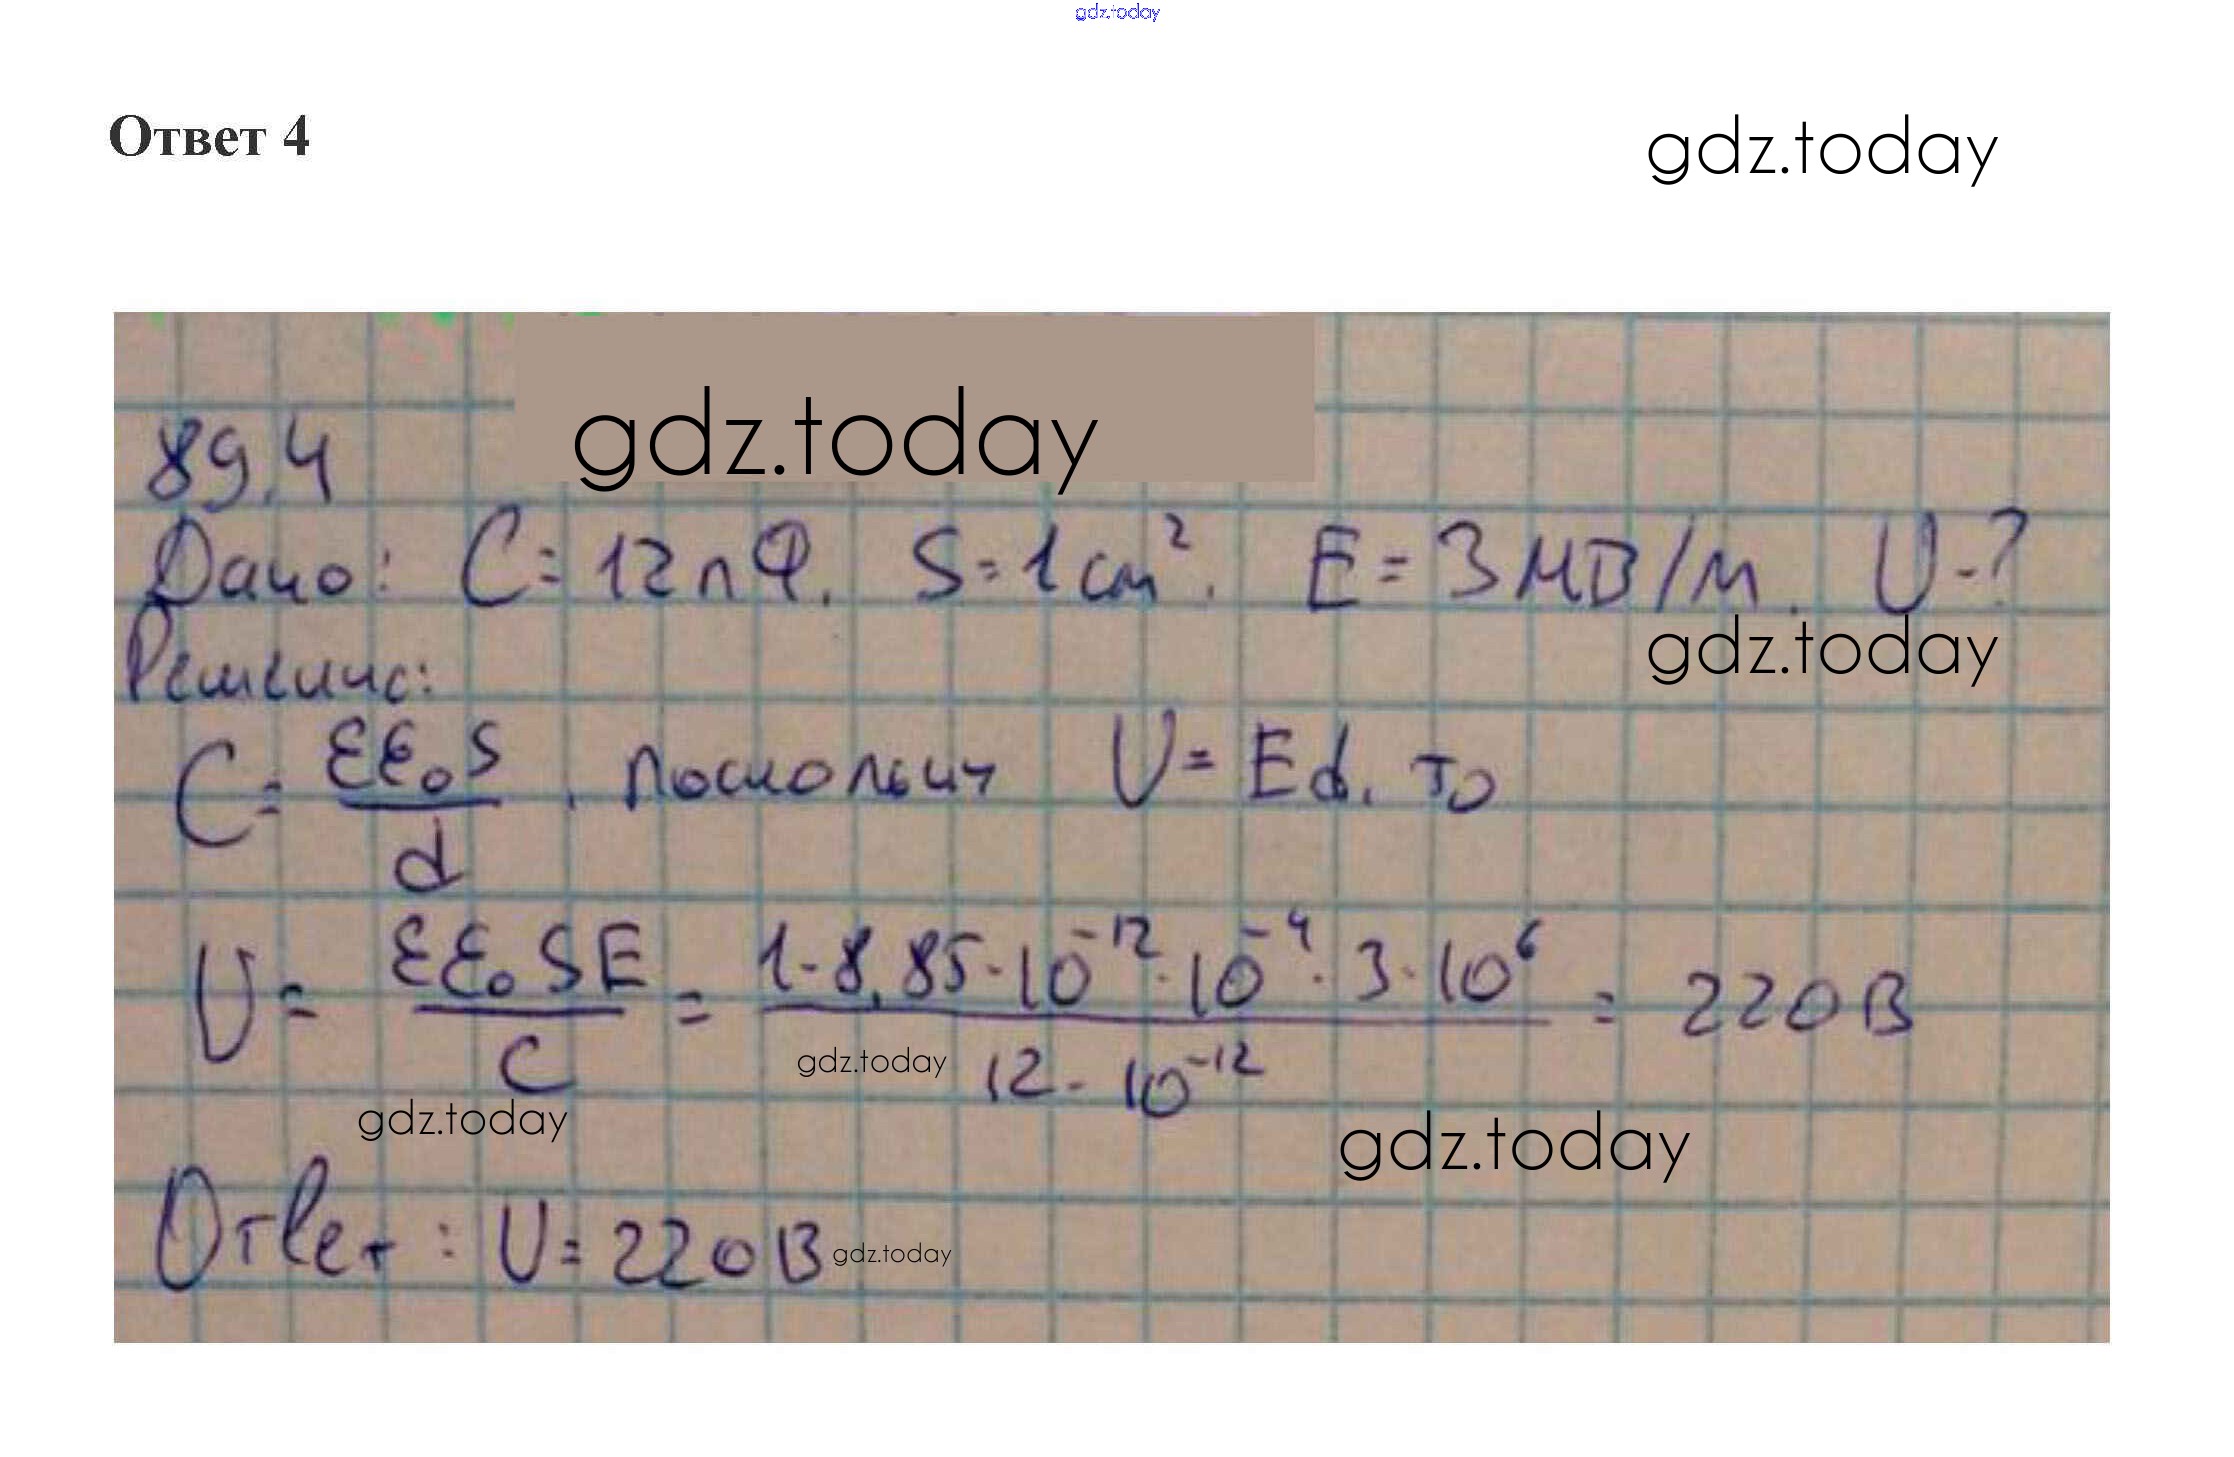 gdz.today
Ответ 4
gdz.today
gdz.today
89.4
Дано: C = 12 пФ. S = 1 см². E = 3 МВ/м. U - ?
gdz.today
Решение:
C = εε₀S / d , поскольку U = Ed, то
U = εε₀SE / C = 1 · 8,85 · 10⁻¹² · 10⁻⁴ · 3 · 10⁶ / 12 · 10⁻¹² = 220 В
gdz.today
gdz.today
gdz.today
Ответ: U = 220 В
gdz.today